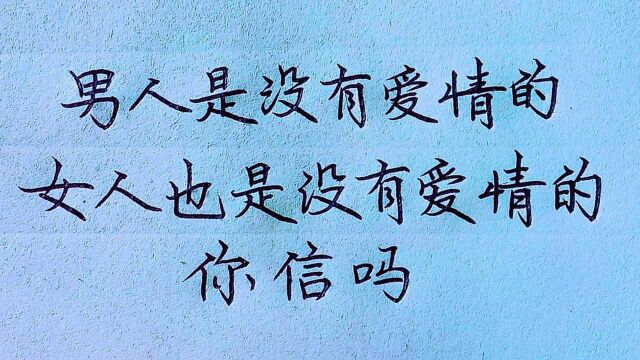 男人是没有爱情的
女人也是没有爱情的
你信吗